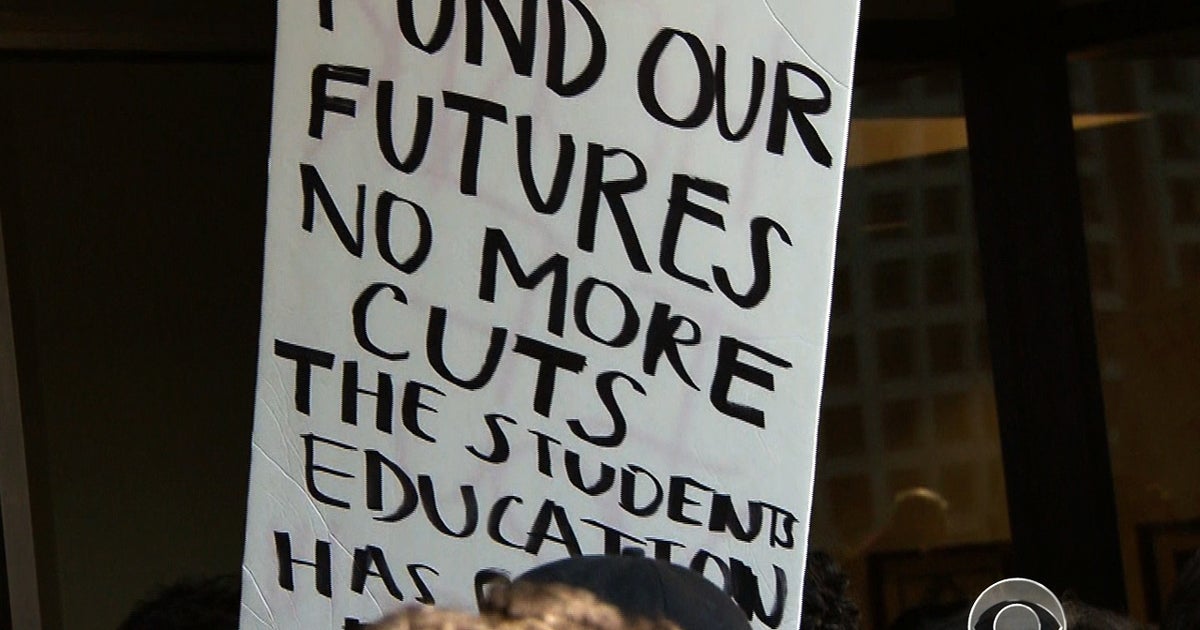 FUND OUR
FUTURES
NO MORE
CUTS
THE STUDENTS
EDUCATION
HAS